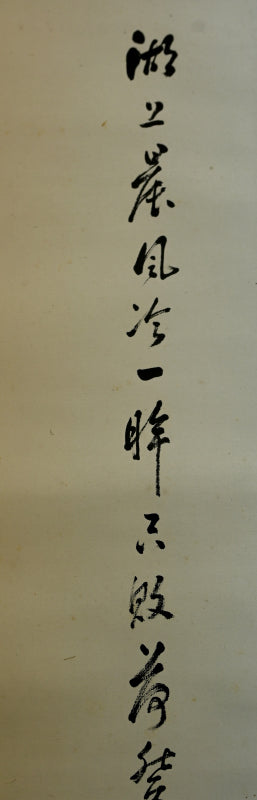 湖上晨風冷一眸只敗荷